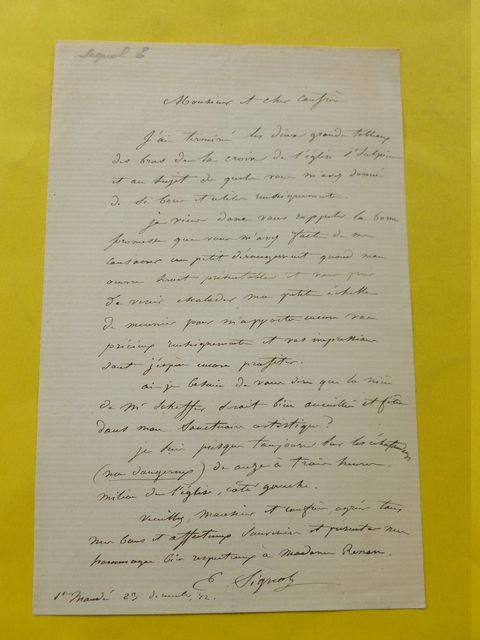 Signol E
Monsieur et cher confrère
J'ai terminé les deux grands tableaux
des bras de la croix de l'église St Sulpice
et au sujet desquels vous m'avez donné
de si bons et utiles renseignements.
je viens donc vous rappeler la bonne
promesse que vous m'avez faite de me
consacrer un petit dérangement quand mon
œuvre serait présentable et vous prier
de venir escalader ma petite échelle
de meunier pour m'apporter encore vos
précieux renseignements et vos impressions
dont j'espère encore profiter.
ai-je besoin de vous dire que la nièce
de Mr Scheffer serait bien accueillie et fêtée
dans mon sanctuaire artistique?
je suis presque toujours sur les échafaudages
(non dangereux) de onze à trois heures,
milieu de l'église, côté gauche.
Veuillez, monsieur et confrère agréer tous
mes bons et affectueux souvenirs et présenter mes
hommages bien respectueux à Madame Renan.
E. Signol
St Mandé 23 décembre, 72.